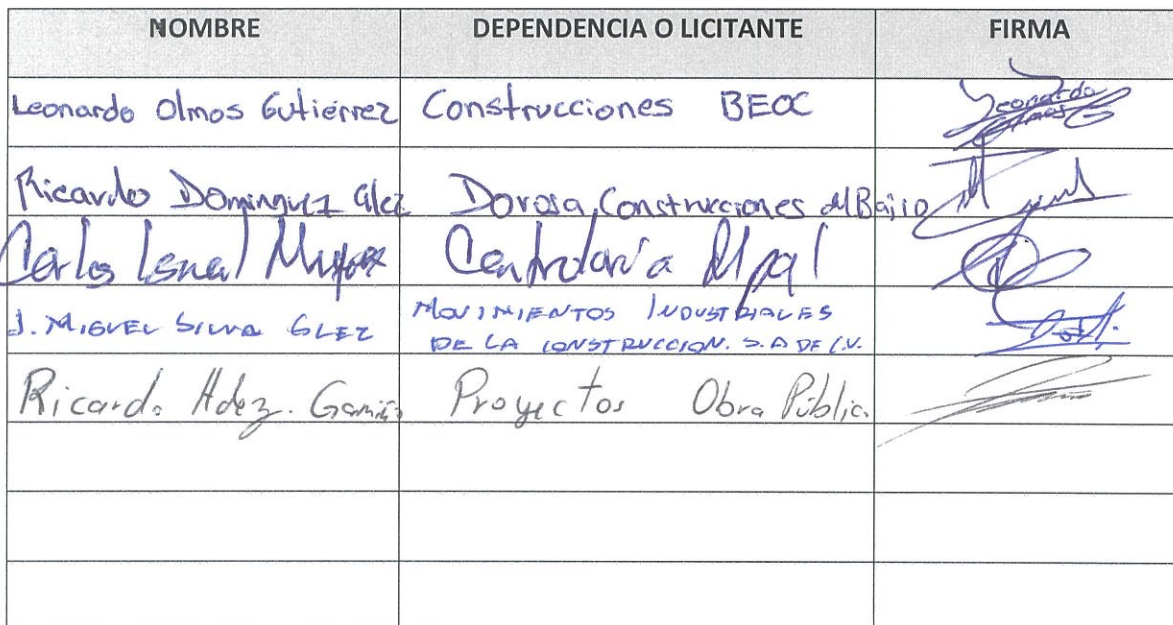 NOMBRE DEPENDENCIA O LICITANTE FIRMA
Leonardo Olmos Gutiérrez Construcciones BEOC Leonardo Olmos G
Ricardo Dominguez Glez Dorosa Construcciones del Bajio
Carlos Ismael Contraloría Mpal
J. MIGUEL SILVA GLEZ MOVIMIENTOS INDUSTRIALES
DE LA CONSTRUCCION. S.A DE C.V.
Ricardo Hdez. Gamiño Proyectos Obra Pública